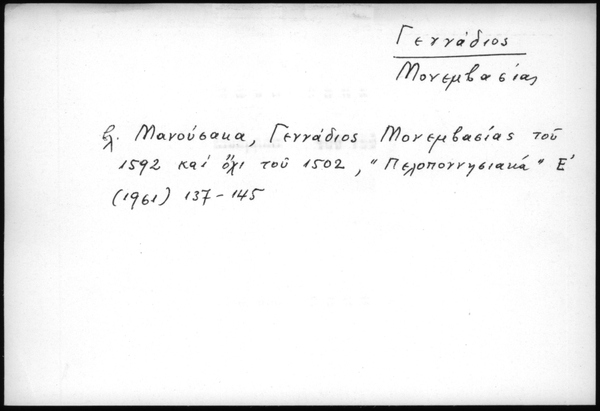 Γεννάδιος
Μονεμβασίας
βλ. Μανούσακα, Γεννάδιος Μονεμβασίας τοῦ
1592 καί ὄχι τοῦ 1502, "Πελοποννησιακά" Ε'
(1961) 137-145